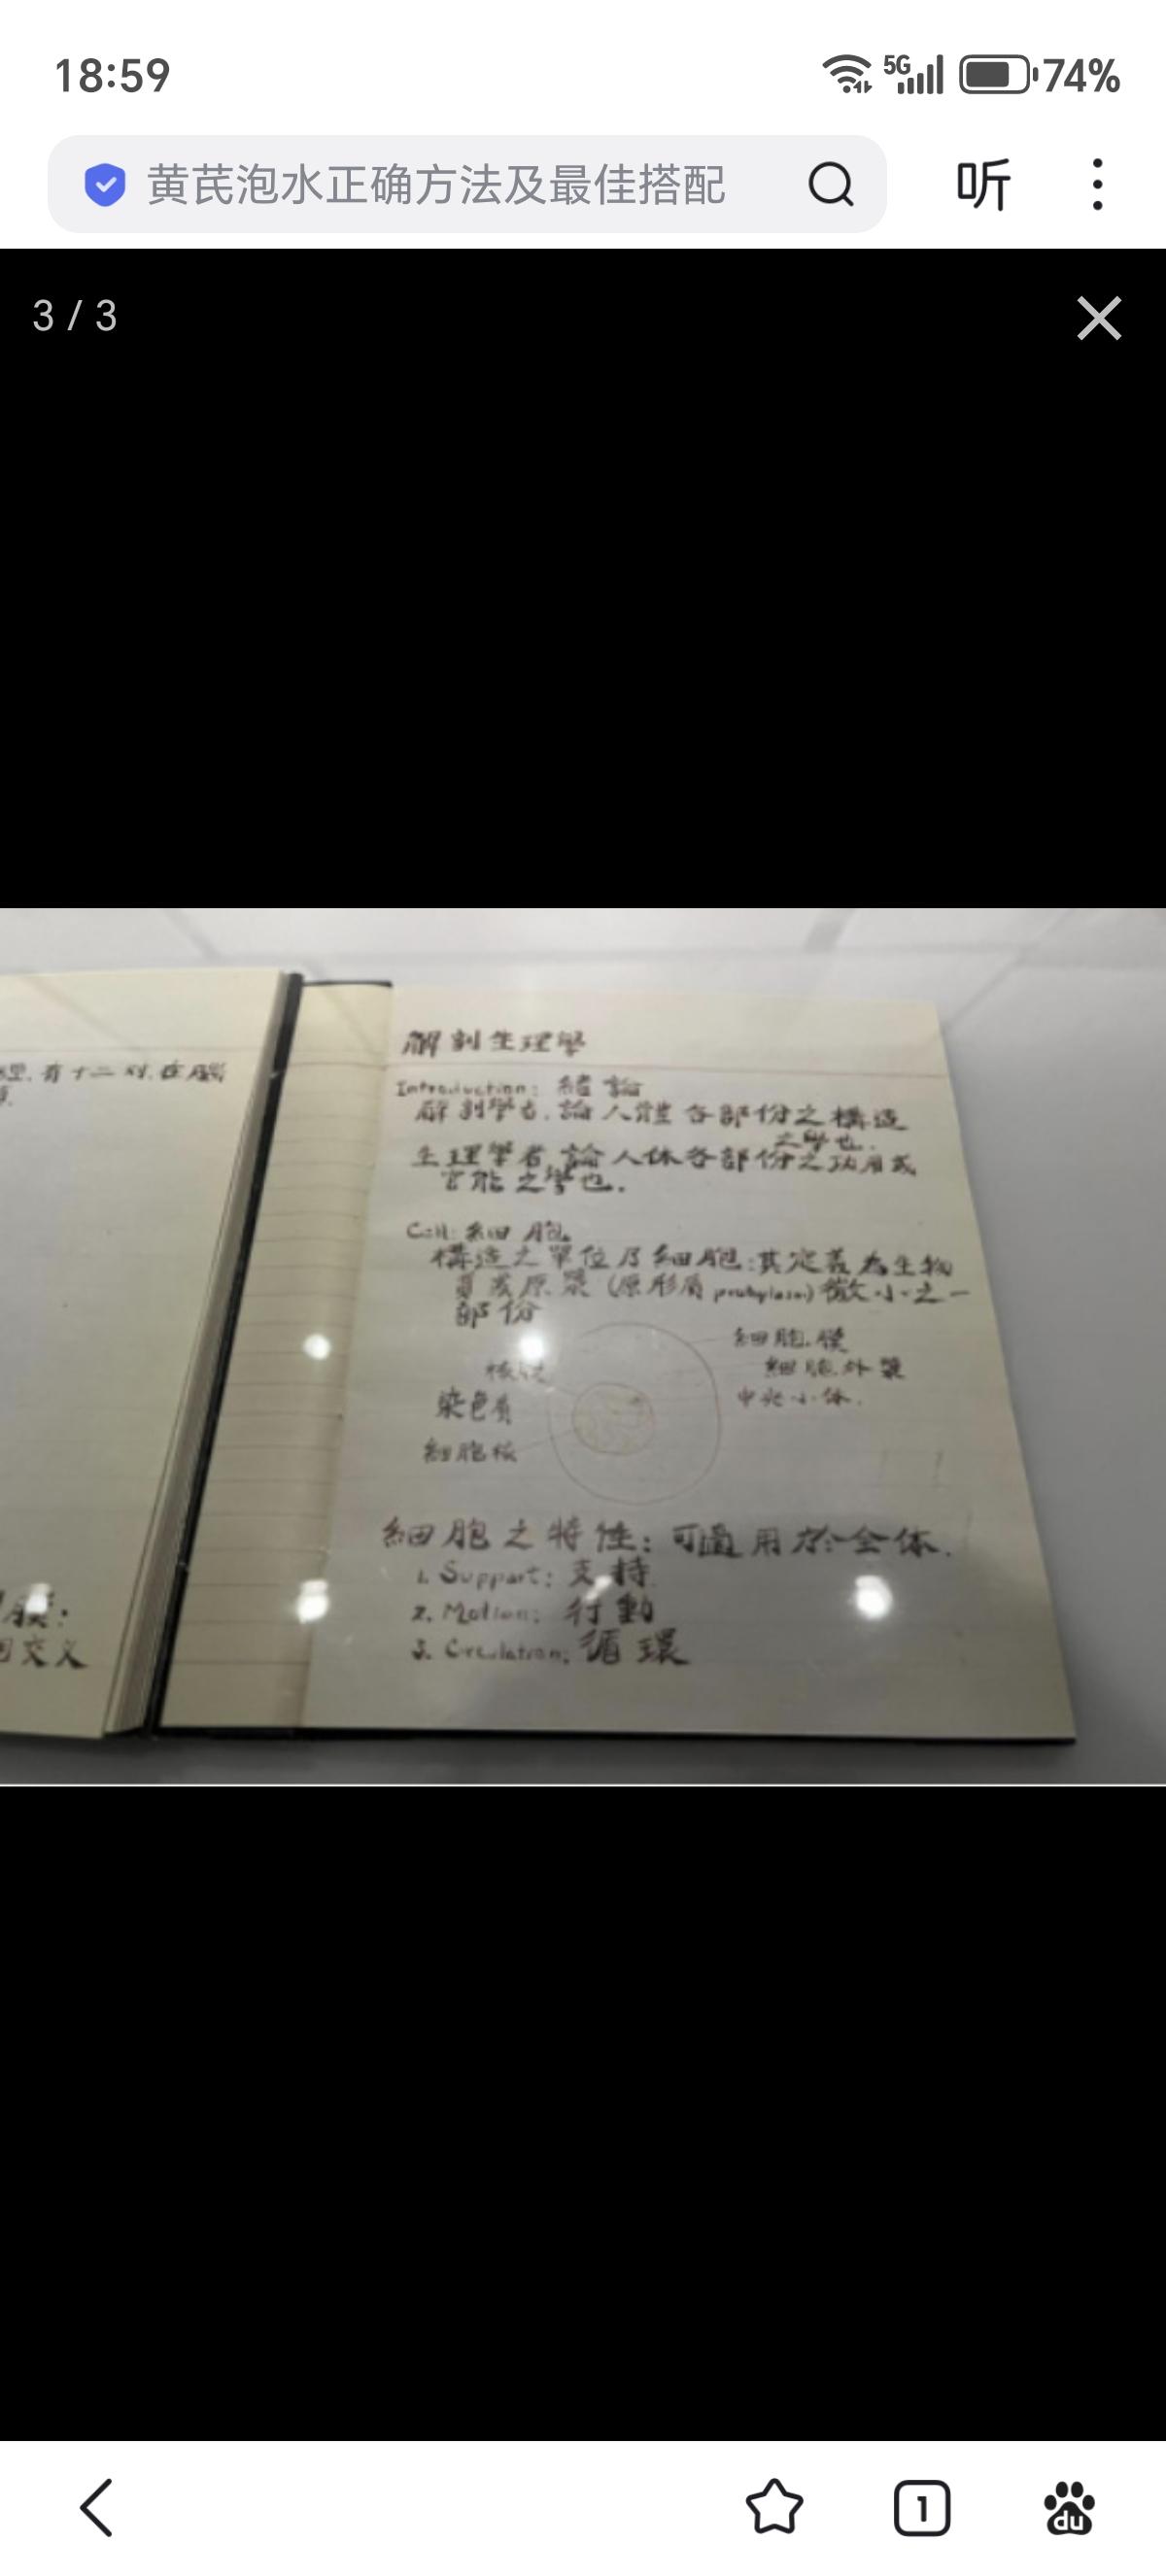 18:59
5G
74%
黄芪泡水正确方法及最佳搭配
听
3 / 3
有十二对.在腦
解剖生理學
Introduction: 緒論
解剖學者.論人體各部份之構造
之學也.
生理學者.論人体各部份之功用或
官能之學也.
Cell: 細胞
構造之單位乃細胞:其定義為生物
原漿(原形質)微小之一
部份
細胞膜
細胞外漿
染色質
中央小体.
細胞核
細胞之特性:可適用於全体.
1. Support: 支持
2. Motion: 行動
3. Circulation: 循環
膜:
交义
1
du